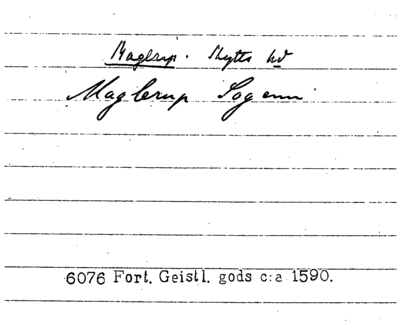 Maglerup. Skytts hd
Maglerup Sogenn
6076 Fort. Geistl. gods c:a 1590.